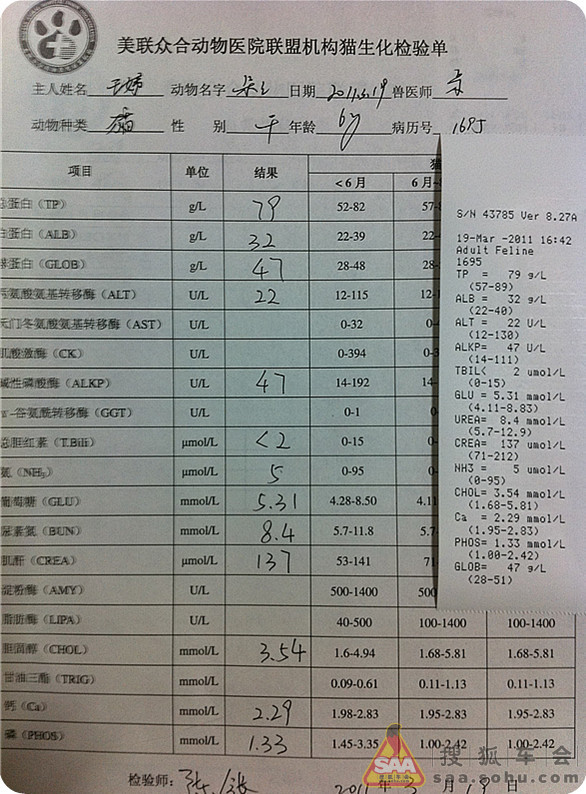 美联众合动物医院联盟机构猫生化检验单
主人姓名 动物名字 日期 2011.3.19 兽医师
动物种类 猫 性 别 年龄 6y 病历号 1695
项目 单位 结果
<6月 6月
蛋白(TP) g/L 79 52-82 57-
白蛋白(ALB) g/L 32 22-39 22-
球蛋白(GLOB) g/L 47 28-48 28-
丙氨酸氨基转移酶(ALT) U/L 22 12-115 12-1
天门冬氨酸氨基转移酶(AST) U/L 0-32 0-
肌酸激酶(CK) U/L 0-394 0-3
碱性磷酸酶(ALKP) U/L 47 14-192 14-
γ-谷氨酰转移酶(GGT) U/L 0-1 0-
总胆红素(T.Bili) μmol/L <2 0-15 0-
氨(NH₃) μmol/L 5 0-95 0-
葡萄糖(GLU) mmol/L 5.31 4.28-8.50 4.11
尿素氮(BUN) mmol/L 8.4 5.7-11.8 5.7
肌酐(CREA) μmol/L 137 53-141 71
淀粉酶(AMY) U/L 500-1400 500
脂肪酶(LIPA) U/L 40-500 100-1400 100-1400
胆固醇(CHOL) mmol/L 3.54 1.6-4.94 1.68-5.81 1.68-5.81
甘油三酯(TRIG) mmol/L 0.09-0.61 0.11-1.13 0.11-1.13
钙(Ca) mmol/L 2.29 1.98-2.83 1.95-2.83 1.95-2.83
磷(PHOS) mmol/L 1.33 1.45-3.35 1.00-2.42 1.00-2.42
检验师: 2011 年 3 月 19 日
S/N 43785 Ver 8.27A
19-Mar -2011 16:42
Adult Feline
1695
TP = 79 g/L
(57-89)
ALB = 32 g/L
(22-40)
ALT = 22 U/L
(12-130)
ALKP= 47 U/L
(14-111)
TBIL< 2 umol/L
(0-15)
GLU = 5.31 mmol/L
(4.11-8.83)
UREA= 8.4 mmol/L
(5.7-12.9)
CREA= 137 umol/L
(71-212)
NH3 = 5 umol/L
(0-95)
CHOL= 3.54 mmol/L
(1.68-5.81)
Ca = 2.29 mmol/L
(1.95-2.83)
PHOS= 1.33 mmol/L
(1.00-2.42)
GLOB= 47 g/L
(28-51)
SAA
搜狐车会
搜狐车会
saa.sohu.com